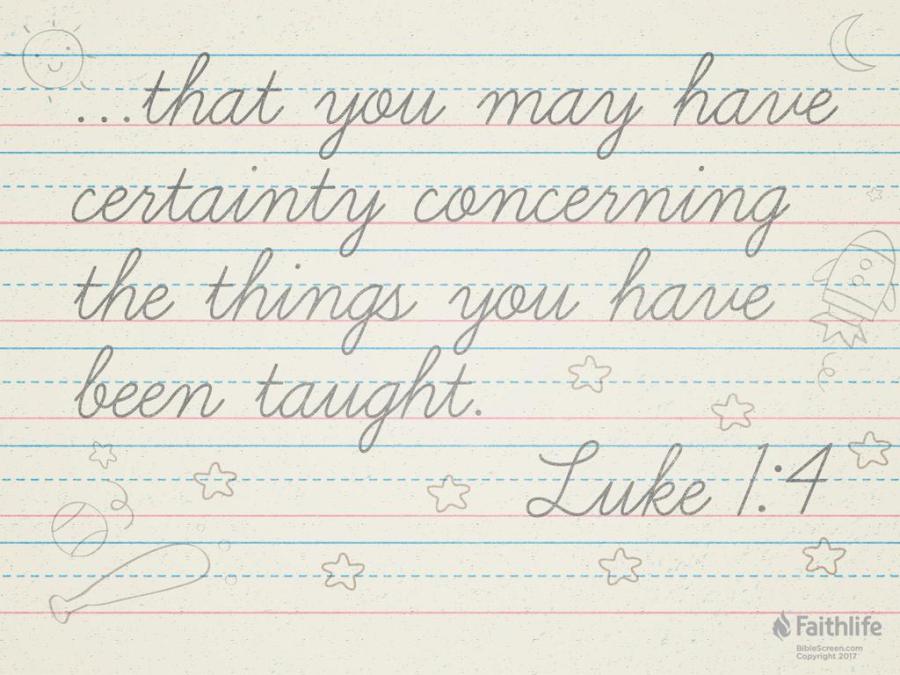 ...that you may have
certainty concerning
the things you have
been taught.
Luke 1:4
Faithlife
BibleScreen.com
Copyright 2017